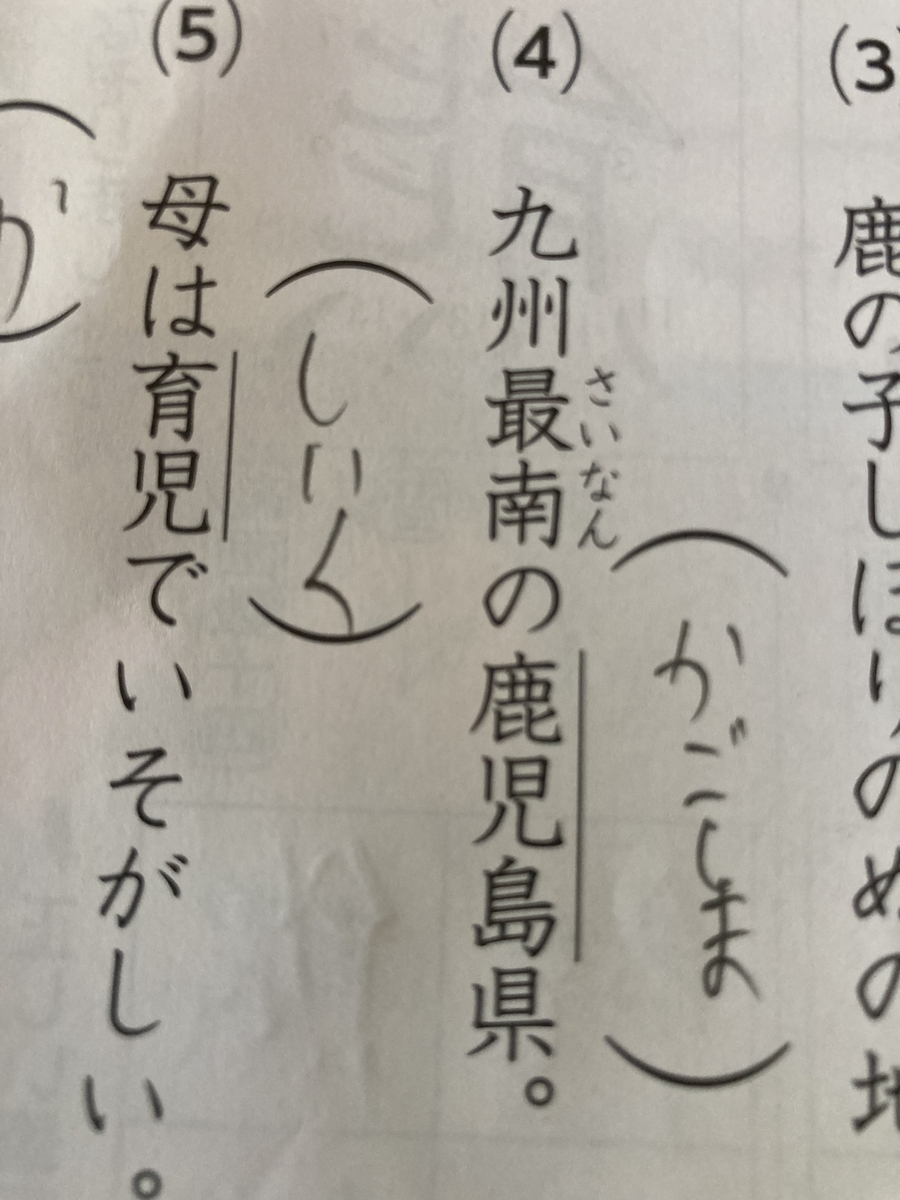 (3)
鹿の子しぼりのめの地
(4)
さいなん
九州最南の鹿児島県。
かごしま
(5)
母は育児でいそがしい。
しいく
か